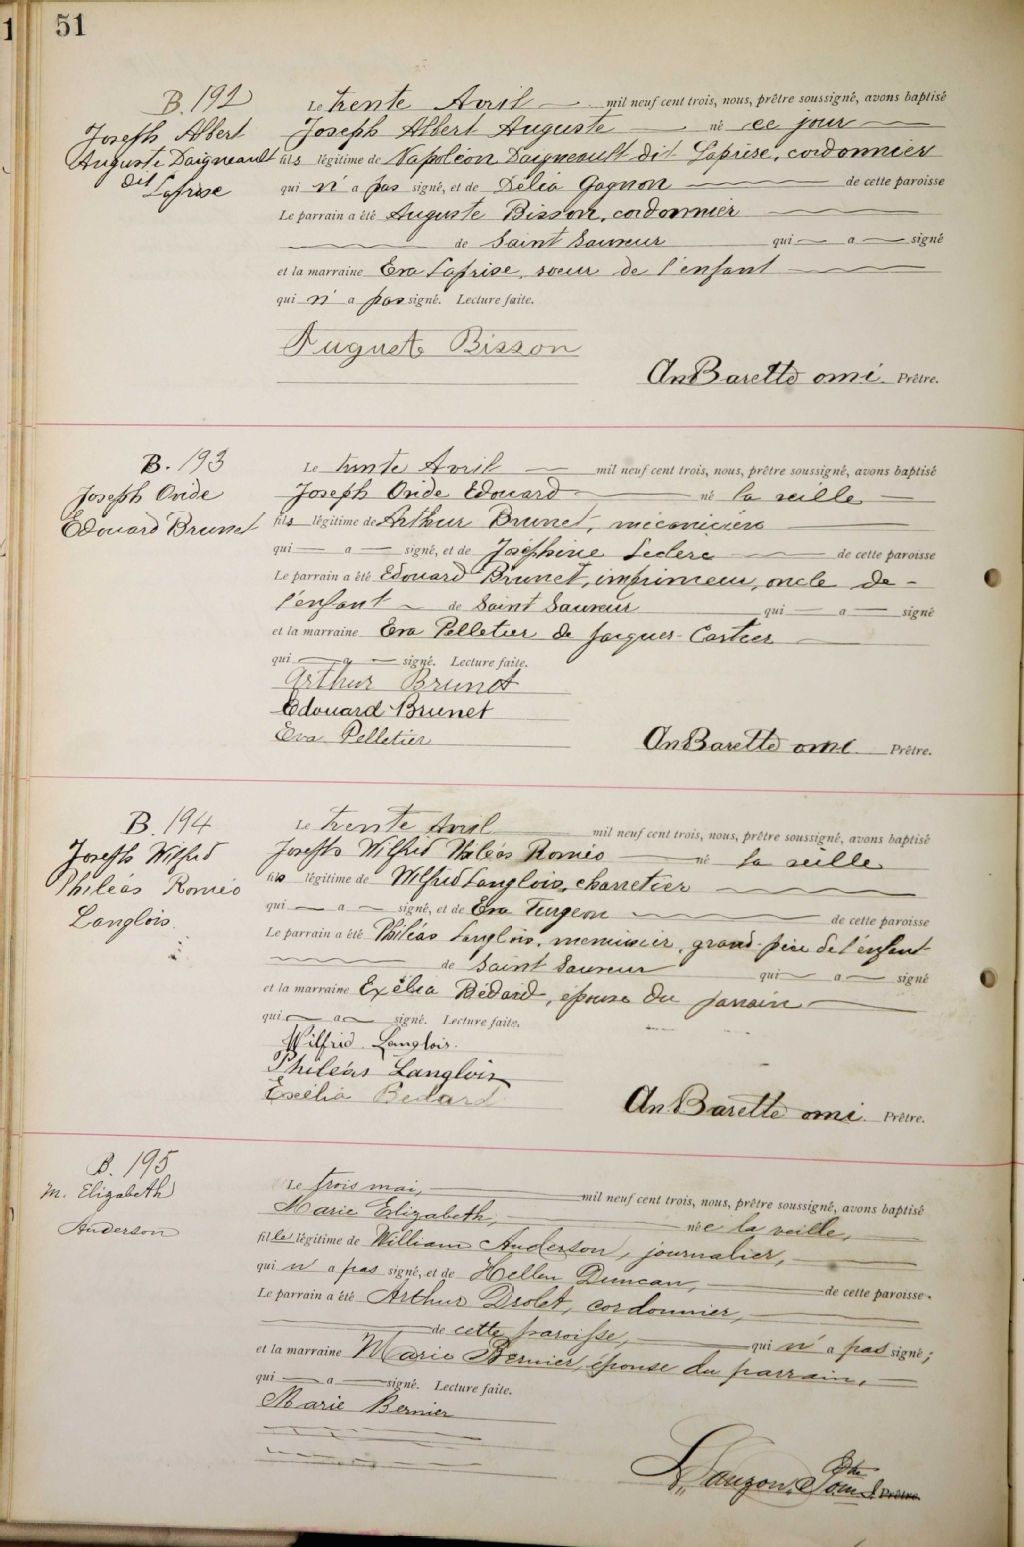 1
51
B. 192
Joseph Albert
Auguste Daigneault
dit
Laprise
Le trente Avril mil neuf cent trois, nous, prêtre soussigné, avons baptisé
Joseph Albert Auguste né ce jour
fils légitime de Napoléon Daigneault dit Laprise, cordonnier
qui n'a pas signé, et de Délia Gagnon de cette paroisse
Le parrain a été Auguste Bisson, cordonnier
de Saint Sauveur qui a signé
et la marraine Eva Laprise, soeur de l'enfant
qui n'a pas signé. Lecture faite.
Auguste Bisson
An Barette omi Prêtre.
B. 193
Joseph Ovide
Edouard Brunet
Le trente Avril mil neuf cent trois, nous, prêtre soussigné, avons baptisé
Joseph Ovide Edouard né la veille
fils légitime de Arthur Brunet, mécanicien
qui a signé, et de Joséphine Leclerc de cette paroisse
Le parrain a été Edouard Brunet, imprimeur, oncle de
l'enfant de Saint Sauveur qui a signé
et la marraine Eva Pelletier de Jacques-Cartier
qui a signé. Lecture faite.
Arthur Brunet
Edouard Brunet
Eva Pelletier
An Barette omi Prêtre.
B. 194
Joseph Wilfrid
Philéas Roméo
Langlois
Le trente Avril mil neuf cent trois, nous, prêtre soussigné, avons baptisé
Joseph Wilfrid Philéas Roméo né la veille
fils légitime de Wilfrid Langlois, charretier
qui a signé, et de Eva Turgeon de cette paroisse
Le parrain a été Philéas Langlois, menuisier, grand-père de l'enfant
de Saint Sauveur qui a signé
et la marraine Exélia Bédard, épouse du parrain
qui a signé. Lecture faite.
Wilfrid Langlois
Philéas Langlois
Exélia Bedard
An Barette omi Prêtre.
B. 195
M. Elizabeth
Anderson
Le trois mai, mil neuf cent trois, nous, prêtre soussigné, avons baptisé
Marie Elizabeth, née la veille,
fille légitime de William Anderson, journalier,
qui n'a pas signé, et de Hellen Duncan, de cette paroisse.
Le parrain a été Arthur Drolet, cordonnier,
de cette paroisse, qui n'a pas signé;
et la marraine Marie Bernier, épouse du parrain,
qui a signé. Lecture faite.
Marie Bernier
Lauzon, Ptre
o.m.I. Prêtre.